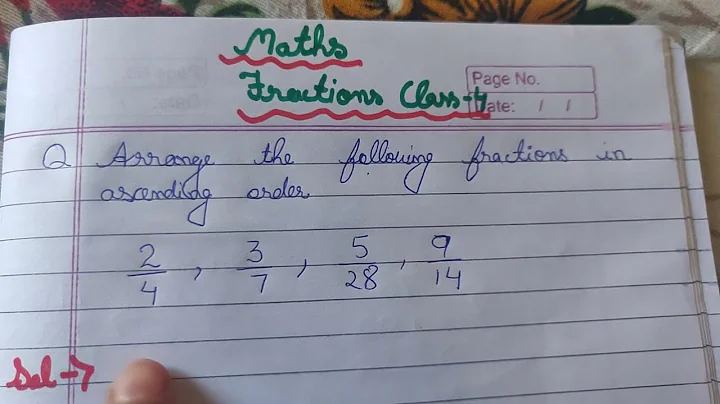 Maths
Fractions Class-4
Page No.
Date: / /
Q Arrange the following fractions in
ascending order
2/4 , 3/7 , 5/28 , 9/14
Sol→